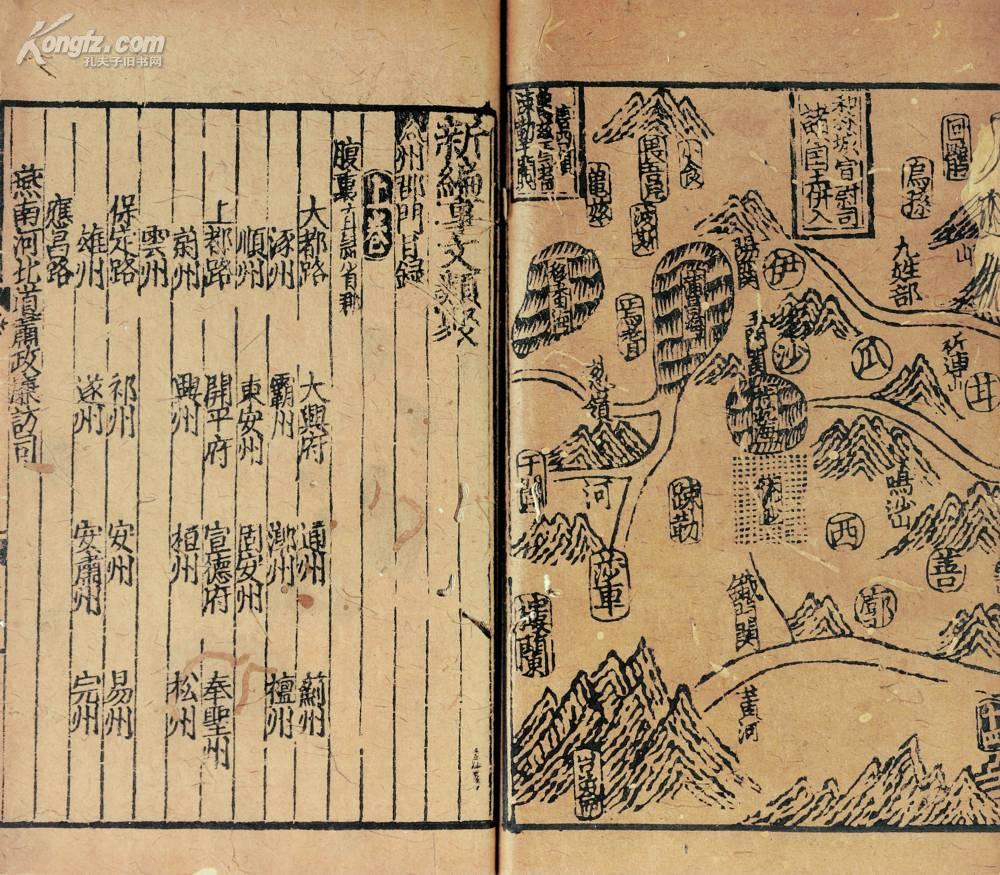 Kongfz.com
孔夫子旧书网
新編事文類聚
州郡門目録
上卷
腹裏
大都路 大興府 通州 薊州
涿州 霸州 漷州 檀州
順州 東安州 固安州
上都路 開平府 宣德府 奉聖州
蔚州 興州 桓州 松州
雲州
保定路 祁州 安州 易州
雄州 遂州 安肅州 完州
應昌路
燕南河北道肅政廉訪司
和林城宣慰司
諸国王併入
回鶻
烏孫
九姓部
山
祁連
甘
瓜
沙
伊
陽関
玉門関
蒲昌海
龜茲
波斯
小食
焉耆
葱嶺
于闐
河
疎勒
莎車
樓蘭
鳴沙山
西
善
鄯
鐵門関
黄河